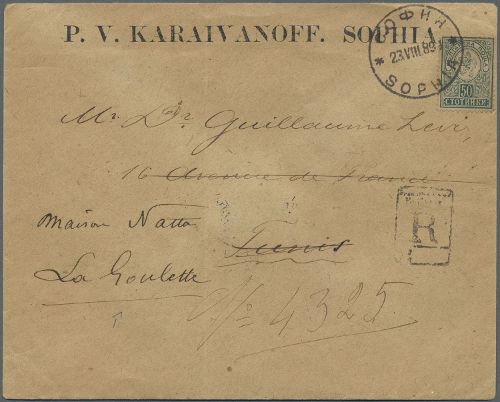 P. V. KARAIVANOFF. SOPHIA
СОФИЯ
* 23 VIII 89 *
SOPHIA
50
СТОТИНКИ
Mr. Dr. Guillaume Levi,
16 Avenue de France
Maison Natta
Tunis
La Goulette
R
No 4325